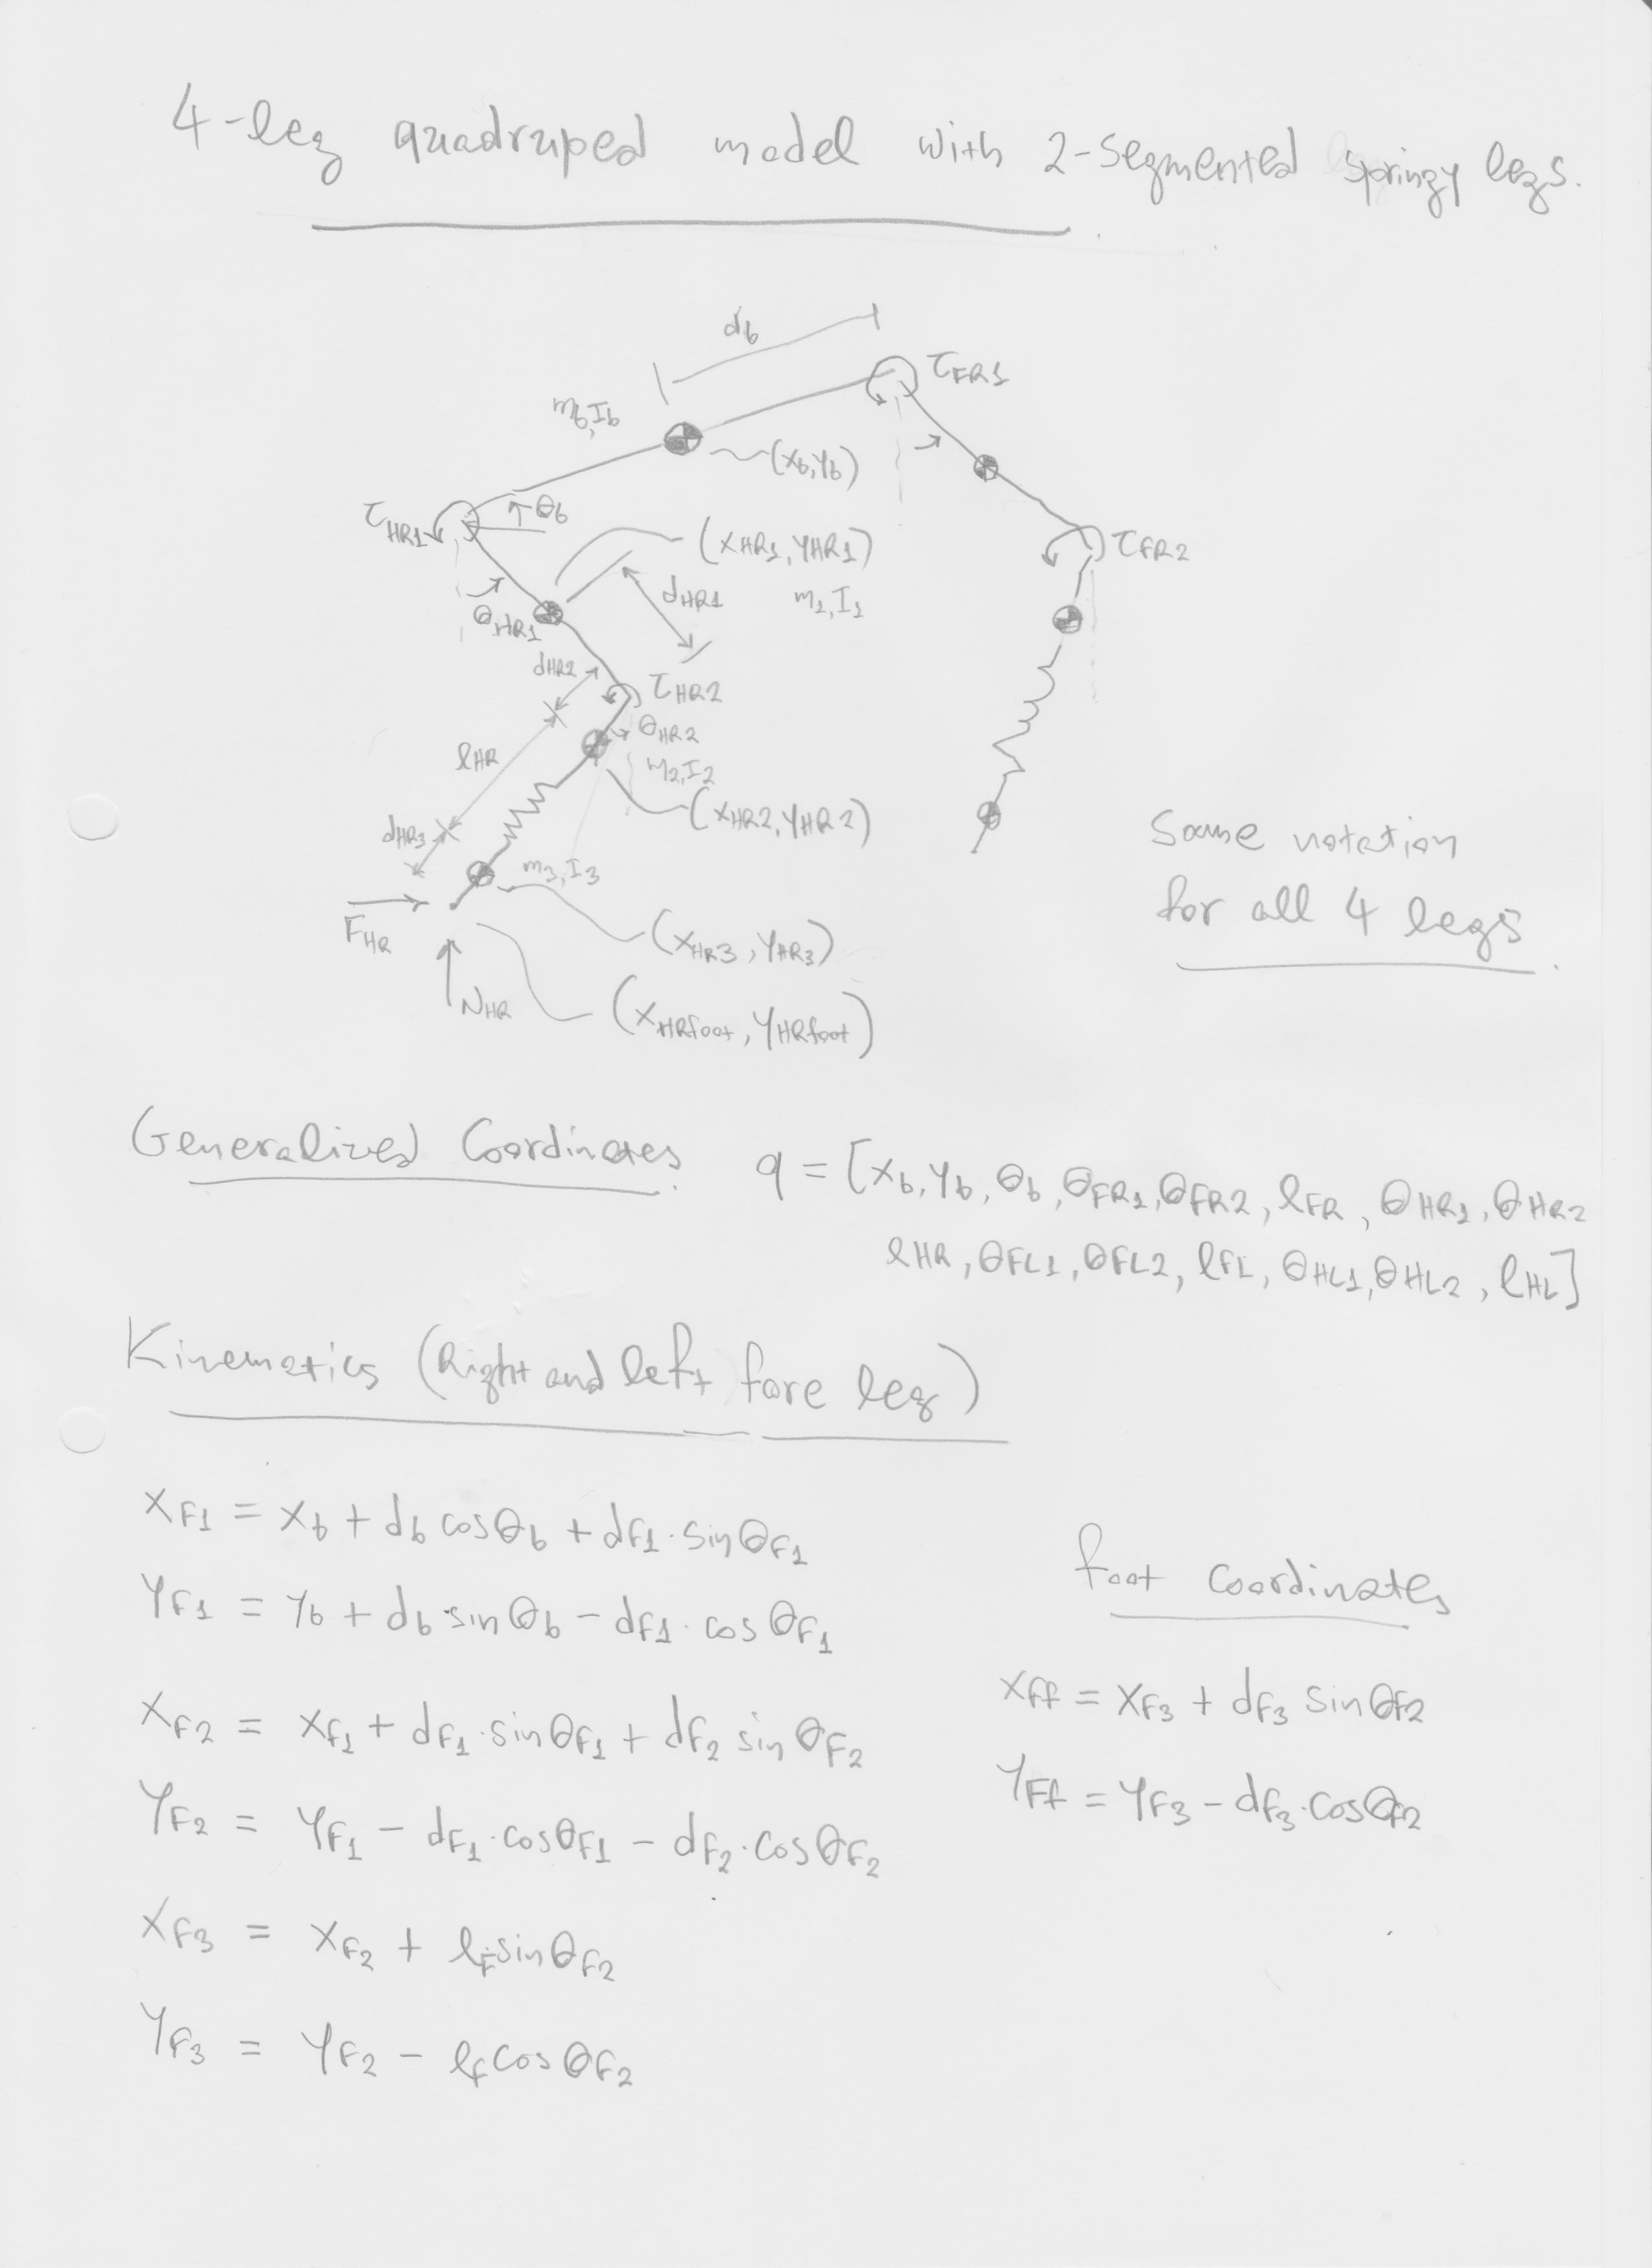 4-leg quadruped model with 2-segmented springy legs.
d_b
τ_FR1
m_b, I_b
(x_b, y_b)
τ_HR1
θ_b
(x_HR1, y_HR1)
τ_FR2
d_HR1
m_1, I_1
θ_HR1
d_HR2
τ_HR2
θ_HR2
l_HR
m_2, I_2
(x_HR2, y_HR2)
d_HR3
m_3, I_3
Same notation
for all 4 legs
F_HR
(x_HR3, y_HR3)
N_HR
(x_HRfoot, y_HRfoot)
Generalized Coordinates q = [x_b, y_b, θ_b, θ_FR1, θ_FR2, l_FR, θ_HR1, θ_HR2
l_HR, θ_FL1, θ_FL2, l_FL, θ_HL1, θ_HL2, l_HL]
Kinematics (Right and left fore leg)
x_F1 = x_b + d_b cosθ_b + d_F1·sinθ_F1
y_F1 = y_b + d_b·sinθ_b - d_F1·cosθ_F1
x_F2 = x_F1 + d_F1·sinθ_F1 + d_F2 sinθ_F2
y_F2 = y_F1 - d_F1·cosθ_F1 - d_F2·cosθ_F2
x_F3 = x_F2 + l_F sinθ_F2
y_F3 = y_F2 - l_F cosθ_F2
foot coordinates
x_Ff = x_F3 + d_F3 sinθ_F2
y_Ff = y_F3 - d_F3·cosθ_F2